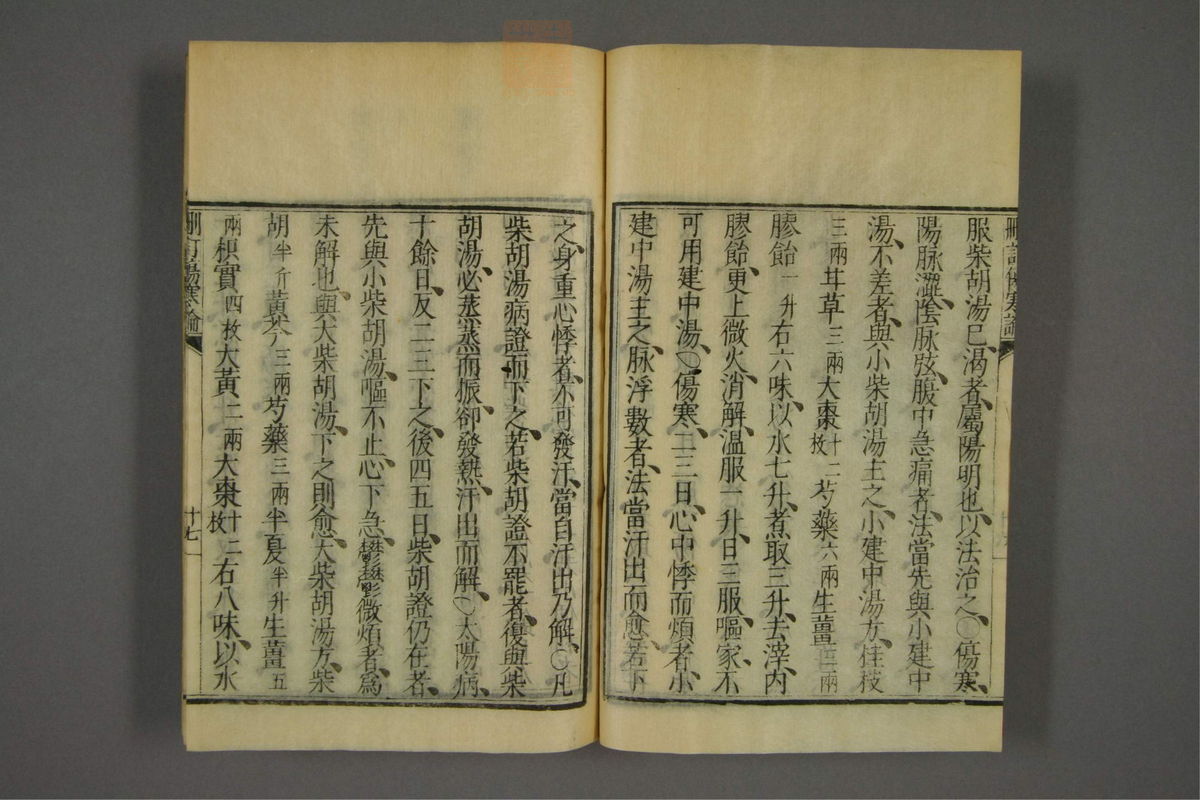 服柴胡湯已渴者、屬陽明也、以法治之、○傷寒、
陽脉澀、陰脉弦、腹中急痛者、法當先與小建中
湯、不差者、與小柴胡湯主之、小建中湯方、桂枝
三兩甘草三兩大棗十二枚芍藥六兩生薑三兩
膠飴一升右六味、以水七升、煮取三升、去滓、內
膠飴、更上微火、消解、溫服一升、日三服、嘔家、不
可用建中湯、○傷寒二三日、心中悸而煩者、小
建中湯主之、脉浮數者、法當汗出而愈、若下
之、身重心悸者、不可發汗、當自汗出乃解、○凡
柴胡湯病證而下之、若柴胡證不罷者、復與柴
胡湯、必蒸蒸而振、卻發熱、汗出而解、○太陽病、
十餘日、反二三下之、後四五日、柴胡證仍在者、
先與小柴胡湯、嘔不止、心下急、鬱鬱微煩者、爲
未解也、與大柴胡湯、下之則愈、大柴胡湯方、柴
胡半斤黃芩三兩芍藥三兩半夏半升生薑五
兩枳實四枚大黃二兩大棗十二枚右八味、以水
刪訂傷寒論
十七